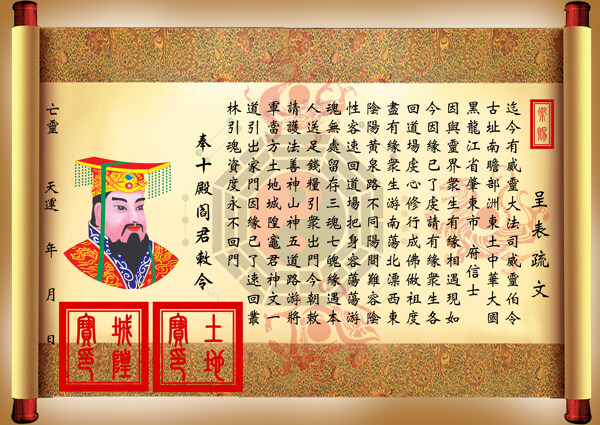 敕賜
呈表疏文
迄今有威靈大法司威靈伯令
古址南瞻部洲東土中華大國
黑龍江省肇東市 府信士
因與靈界衆生有緣相遇現如
今因緣已了虔請有緣衆生各
回道場虔心修行成佛做祖度
盡有緣衆生游南蕩北漂西東
陰陽黄泉路不同陽間難容陰
性客速回道場把身容蕩蕩游
魂無處留存三魂七魄緣遇本
人送足錢糧引衆出門今朝敕
請護法善神山神五道路游將
軍當方土地城隍竈君神文一
道引出家門因緣已了速回叢
林引魂資度永不回門
奉十殿閻君敕令
亡靈 天運 年 月 日
土地寶印
城隍寶印